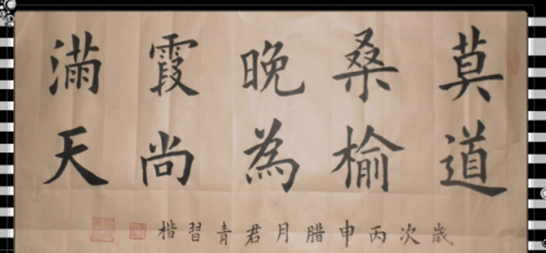 莫道
桑榆
晚為
霞尚
滿天
歲次丙申腊月君青習楷